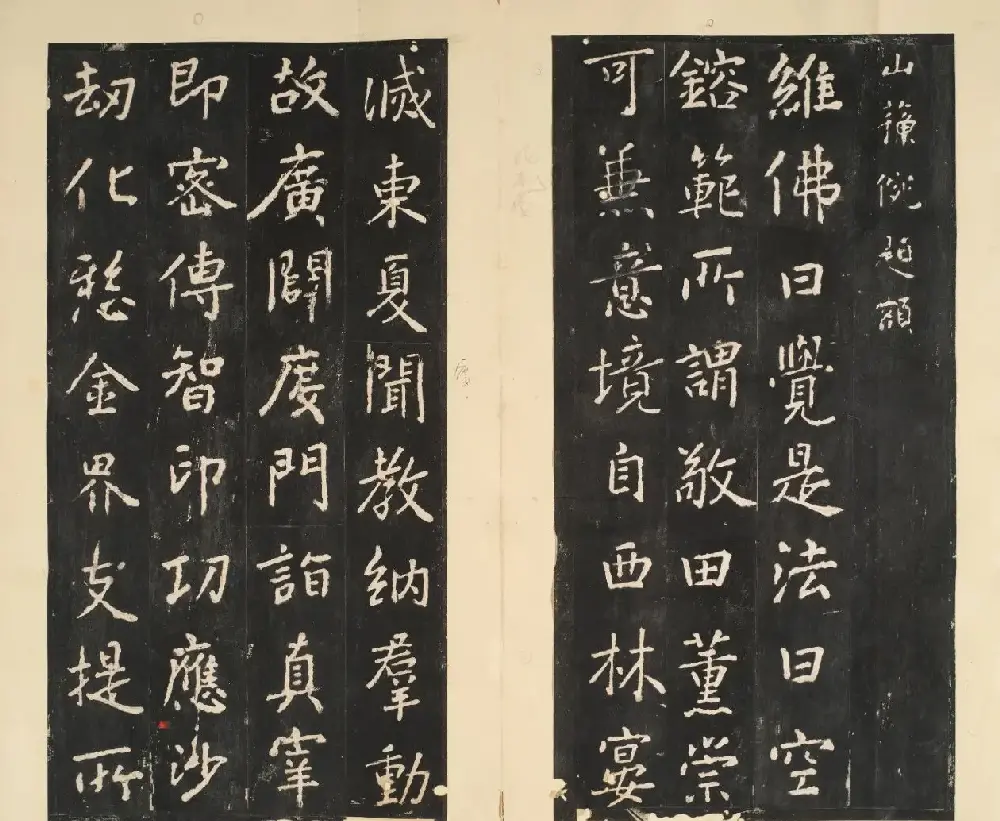 山題額
維佛曰覺是法曰空
鎔範所謂敬田薰崇
可無意境自西林宴
滅東夏聞教納羣動
故廣闢度門詣真宰
即密傳智印功應沙
劫化金界支提所